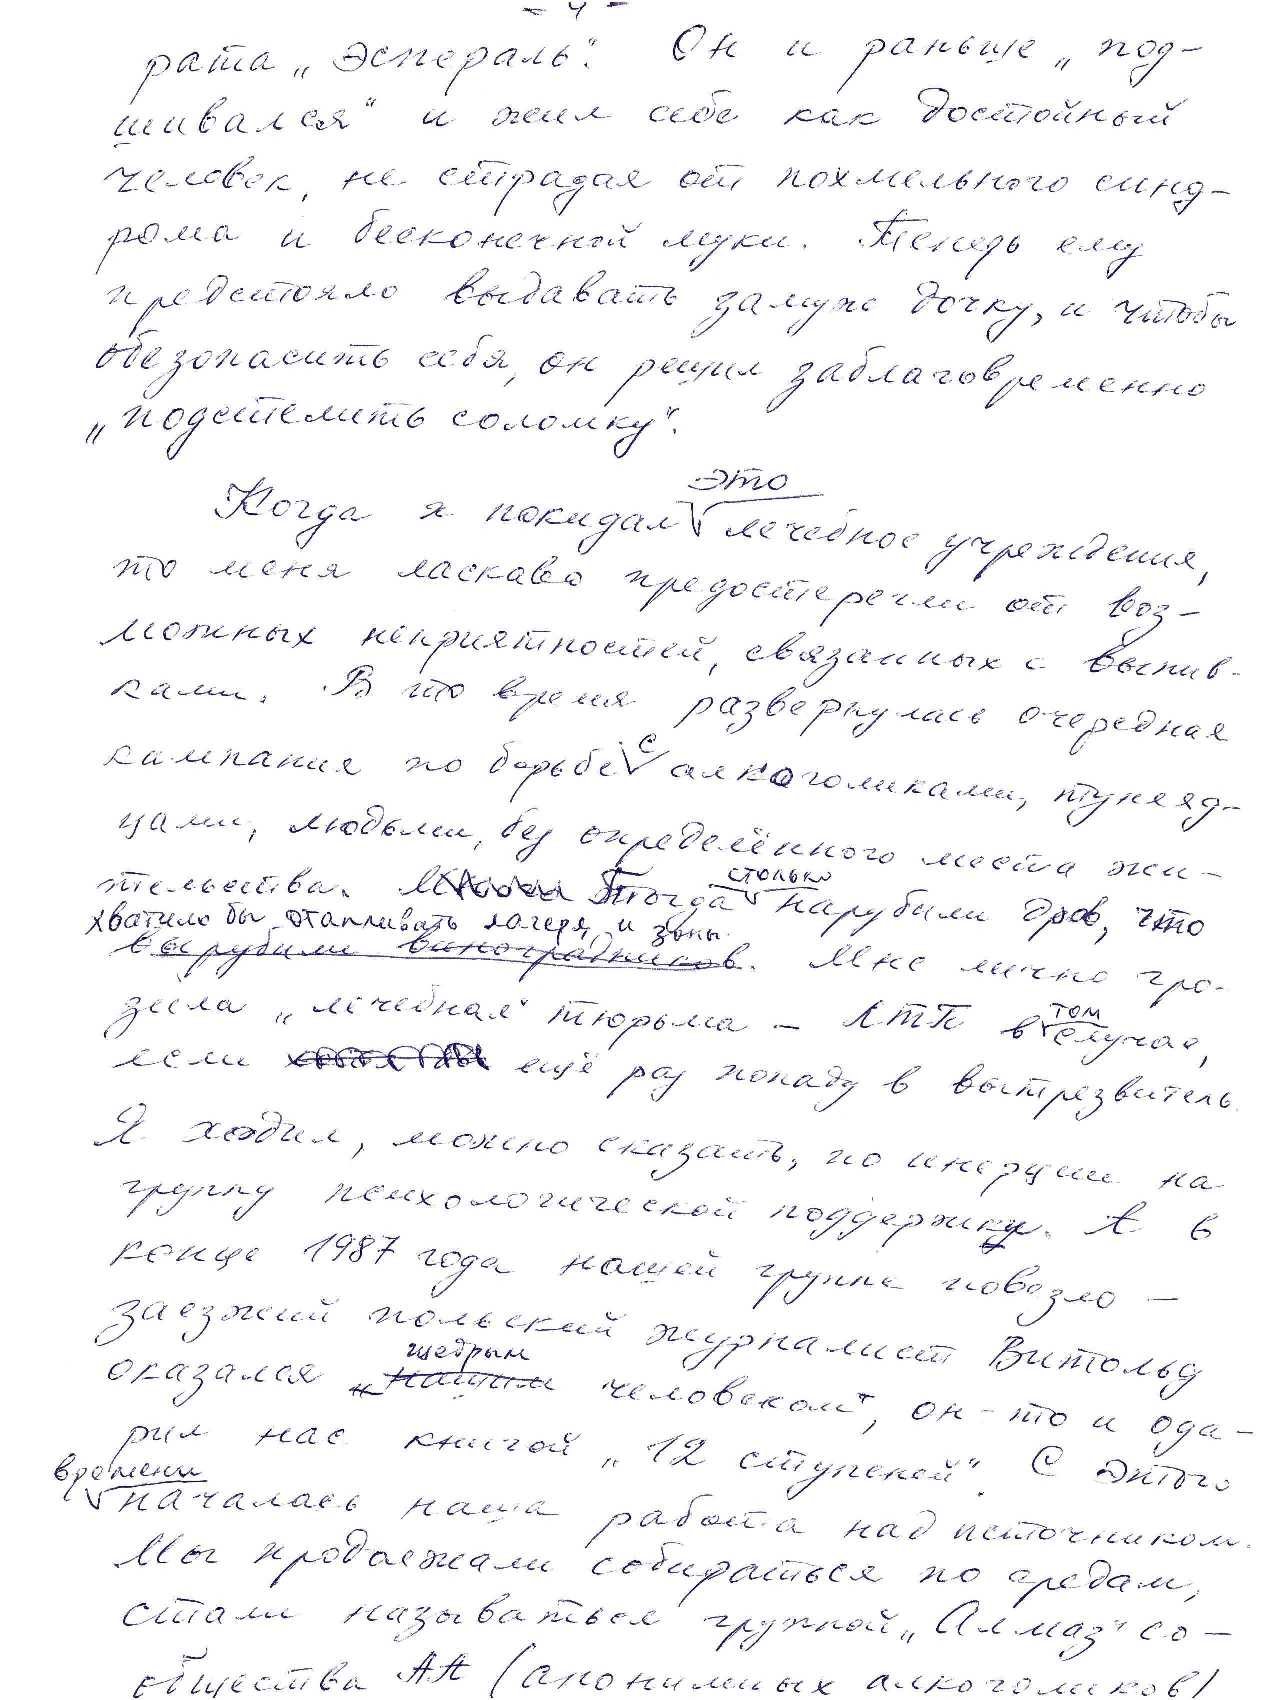 - 4 -
рата „Эспераль“. Он и раньше „под-
шивался“ и жил себе как достойный
человек, не страдая от похмельного синд-
рома и бесконечной муки. Теперь ему
предстояло выдавать замуж дочку, и чтобы
обезопасить себя, он решил заблаговременно
„подстелить соломку“.
это
Когда я покидал лечебное учреждения,
то меня ласково предостерегли от воз-
можных неприятностей, связанных с выпив-
ками. В то время развернулась очередная
с
кампания по борьбе алкоголиками, тунеяд-
цами, людьми, без определённого места жи-
столько
тельства. Тогда нарубили дров, что
хватило бы отапливать лагеря и зоны
вырубили виноградников. Мне лично гро-
том
зила „лечебная“ тюрьма - ЛТП в случае,
если ещё раз попаду в вытрезвитель.
Я ходил, можно сказать, по инерции на
группу психологической поддержки. А в
конце 1987 года нашей группе повезло -
заезжий польский журналист Витольд
щедрым
оказался „нашим человеком“, он-то и ода-
рил нас книгой „12 ступеней“. С этого
времени
началась наша работа над источником.
Мы продолжали собираться по средам,
стали называться группой „Алмаз“ со-
общества АА (анонимных алкоголиков)